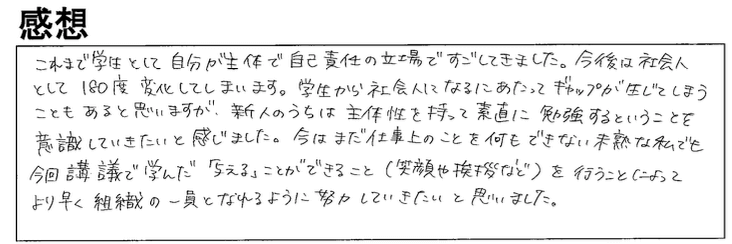 感想
これまで学生として自分が主体で自己責任の立場ですごしてきました。今後は社会人
として180度変化してしまいます。学生から社会人になるにあたってギャップが生じてしまう
こともあると思いますが、新人のうちは主体性を持って素直に勉強するということを
意識していきたいと感じました。今はまだ仕事上のことを何もできない未熟な私でも
今回講議で学んだ「与える」ことができること(笑顔や挨拶など)を行うことによって
より早く組織の一員となれるように努力していきたいと思いました。